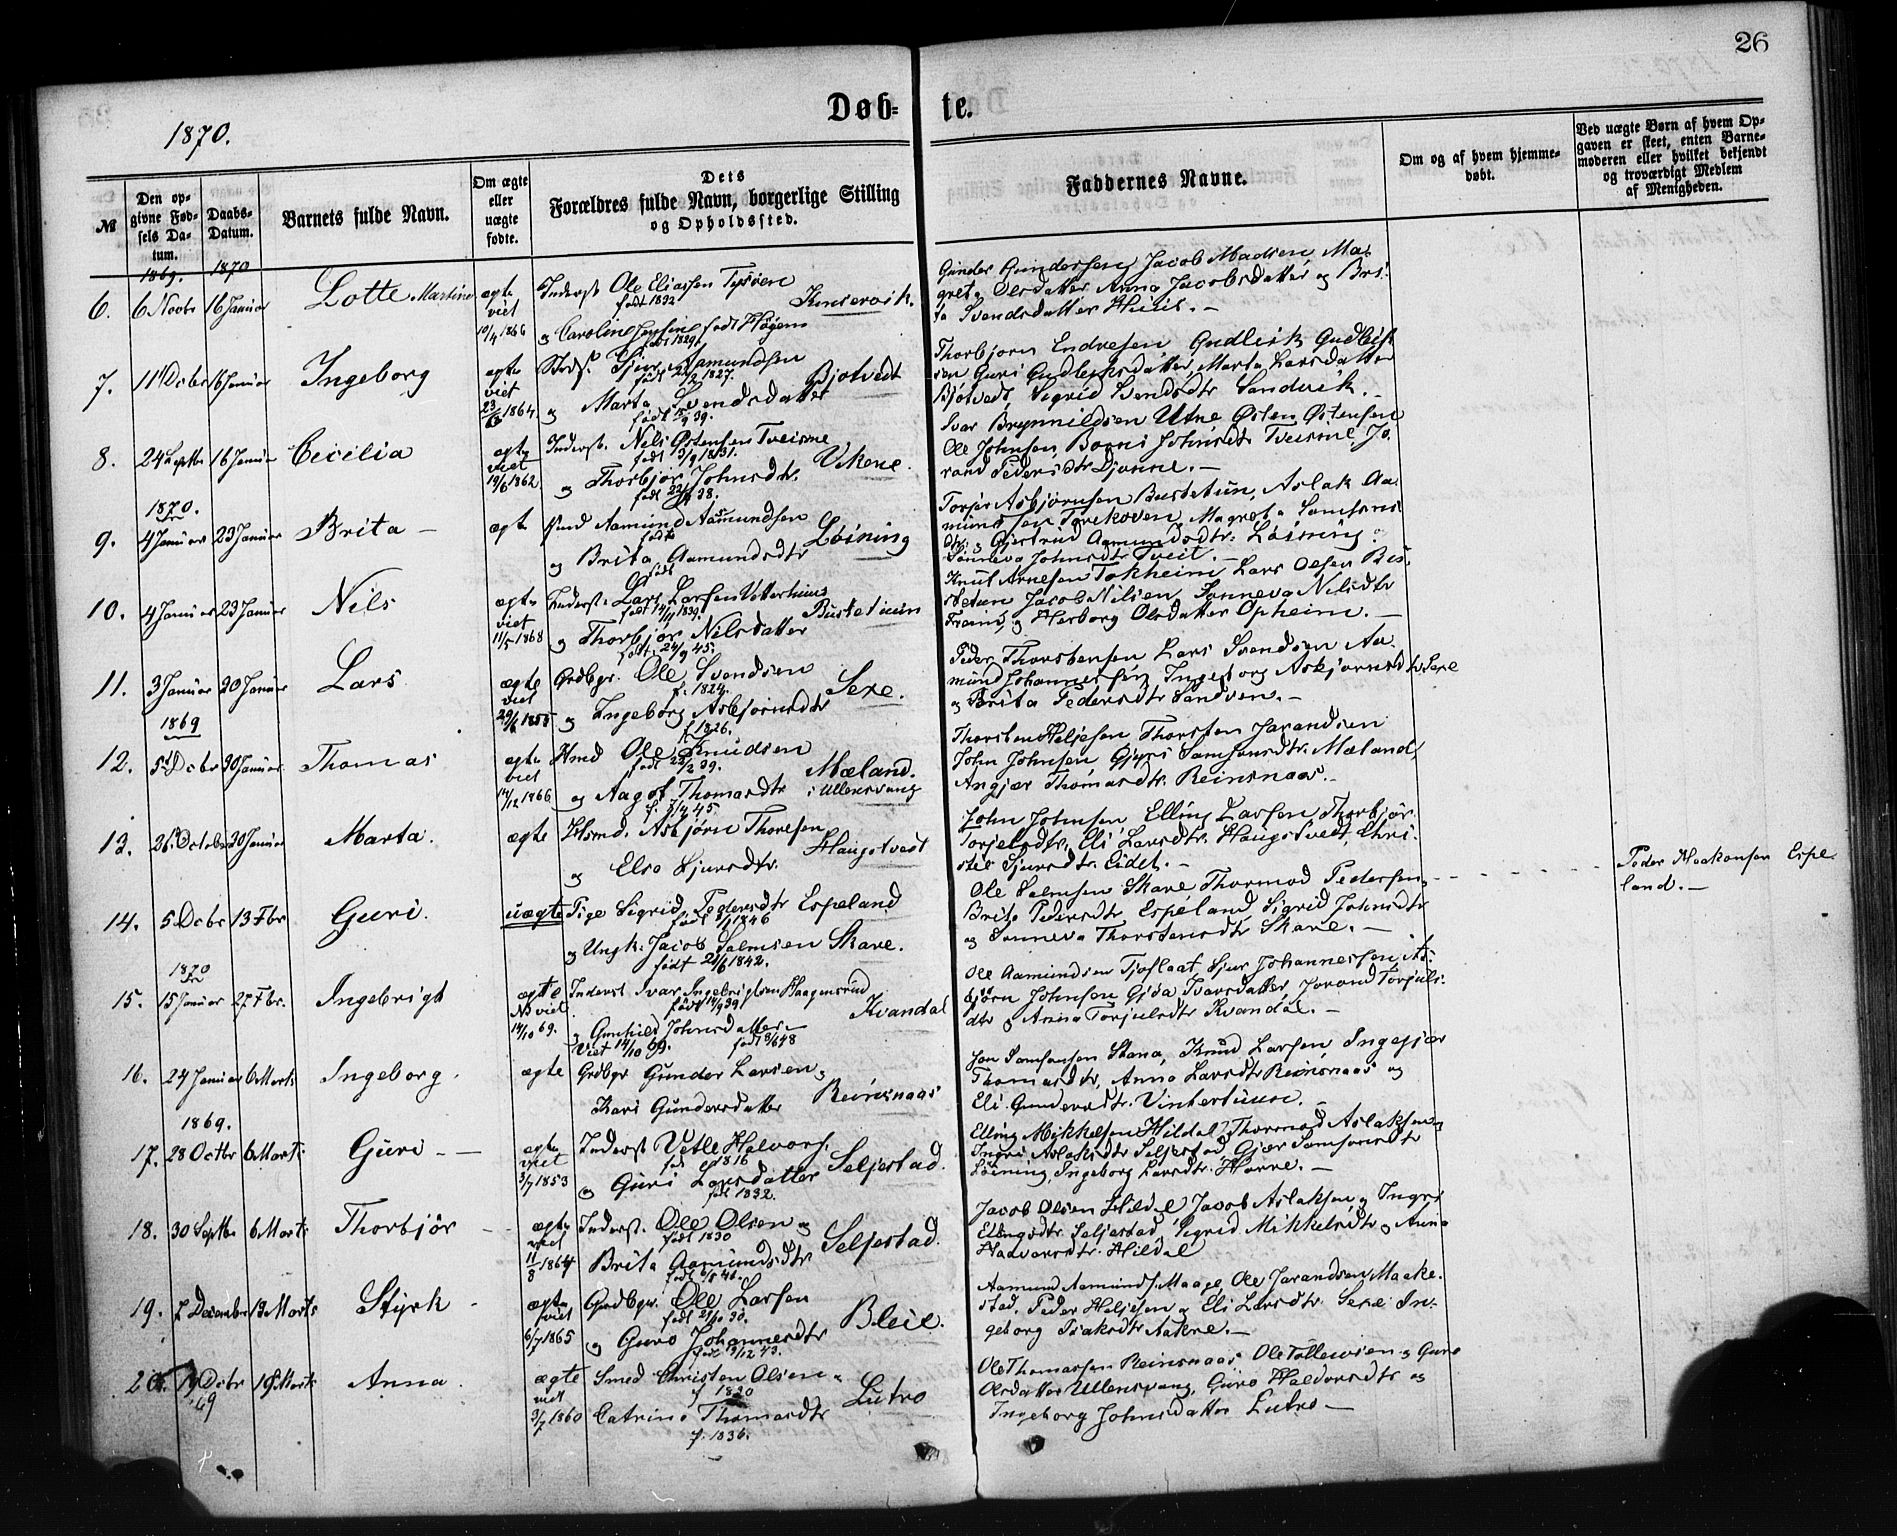 26
Døb- te.
1870.
№
Den op-
givne Fød-
sels Da-
tum.
Daabs-
Datum.
Barnets fulde Navn.
Om ægte
eller
uægte
fødte.
Dets
Forældres fulde Navn, borgerlige Stilling
og Opholdssted.
Faddernes Navne.
Om og af hvem hjemme-
døbt.
Ved uægte Børn af hvem Op-
gaven er skeet, enten Barne-
moderen eller hvilket bekjendt
og troværdigt Medlem
af Menigheden.
1869. 1870
6. 6 Novbr 16 Januar Lotte Martine ægte viet 10/4 1866
Inderst Ole Eliassen Tysøen
født 1832 Kinservik.
og Caroline født Høgem
født 1829
Gunder Gundersen, Jacob Madsen, Ma-
greta Olsdatter Anna Jacobsdatter og Bri-
ta Svendsdatter Huus. -
7. 11 Dcbr 16 Januar Ingeborg ægte viet 1864
Sjur Aamundsen
født 1827. Bjotvedt
og Marta Svendsdatter
født 39.
Thorbjorn Endresen Gudleik Gudleik-
sen Guri Gudleiksdatter, Marta Larsdatter
Bjotvedt Sigrid Svendsdtr Sandvik. -
8. 24 Septbr 16 Januar Cecilia ægte viet 19/6 1862
Inderst. Nils Østensen Tveisme
født 3/9 1831. Vikene.
og Thorbjør Johnsdtr.
født 38.
Ivar Brynnildsen Utne Østen Østensen
Ole Johnsen, Borni Johnsdtr Tveisme, Jo-
rand Pedersdtr Djønne. -
1870.
9. 4 Januar 23 Januar Brita - ægte
Hmd Aamund Aamundsen
født Løining
og Brita Aamundsdtr
født
Torjer Asbjørnsen Bustetun, Aslak Aa-
mundsen Magreta Samsons-
dtr og Gjertrud Aamundsdtr: Løining og
Sønneva Johnsdtr Tveit. -
10. 4 Januar 23 Januar Nils ægte viet 11/5 1868
Inderst. Lars Larsen Vetterhuus
født 14/11 1839. Bustetuun
og Thorbjør Nilsdatter
født 24/9 45.
Knut Arnesen Tokheim Lars Olsen Bus-
tetun Jacob Nilsen, Sønneva Nilsdtr
og Herborg Olsdatter Opheim. -
11. 3 Januar 30 Januar Lars ægte viet 1855
Grdbgr. Ole Svendsen
f. 1824. Sexe.
og Ingeborg Asbjørnsdtr
f. 1826.
Peder Thorstensen Lars Svendsen Aa-
mund Johannessen Ingeborg Asbjørnsdtr Sexe
og Brita Pedersdtr Sandven. -
1869
12. 5 Dcbr 30 Januar Thomas ægte viet 14/12 1866
Hmd Ole Knudsen
født 39. Mæland.
og Aagot Thomasdtr i Ullensvang
f. 3/4 45.
Thorsten Heljesen Thorsten Jarandsen
John Johnsen Gjyri Samsonsdtr. Mæland,
Angjær Thomasdtr. Reinsnaas. -
13. 26 October 30 Januar Marta. ægte
Hsmd. Asbjørn Thoresen
Haugstvedt
og Elso Sjursdtr.
John Johnsen, Elling Larsen Thorbjør
Torjelsdtr, Eli Larsdtr. Haugstvedt, Chri-
stie Sjursdtr. Eidet. -
14. 5 Dcbr 13 Fbr Guri. uægte
Pige Sigrid Pedersdtr Espeland
født 1846
og Ungk. Jacob Salmsen Skare.
født 24/6 1842.
Ole Salmsen Skare Thormod Pedersen,
Brita Pedersdtr Espeland Sigrid Johnsdtr
og Sønneva Thorstensdtr Skare. -
Peder Haakonsen Espe-
land. -
1870
15. 15 Januar 27 Fbr. Ingebrigt ægte viet 14/10 69.
Inderst Ivar Ingebrigtsen Haagensrud
født 14/9 39. Kvandal
og Gunhild Johnsdatter
Viet 14/10 69. født 3/6 48
Ole Aamundsen Tjoflaat, Sjur Johannessen, As-
bjørn Johnsen Gjøa Ivarsdatter Jorand Torjuls-
dtr og Anna Torjulsdtr Kvandal. -
16. 24 Januar 6 Marts Ingeborg. ægte
Grdbgr Gunder Larsen og
Kari Gundersdatter Reinsnaas
Jon Samsonsen Skana, Knud Larsen, Ingejær
Thomasdtr, Anna Larsdtr Reinsnaas og
Eli Gundersdtr. Vintertuun. -
1869.
17. 28 Octbr 6 Marts Guri - - ægte viet 3/7 1853
Inderst Vetle Halvors.
fød 1816 Seljestad.
og Guri Larsdatter
født 1832.
Elling Mikkelsen Hildal, Thormod Aslaksen og
Ingri Aslaksdtr Seljestad Gjær Samsonsdtr
Løining Ingeborg Larsdtr. Horre. -
18. 30 Septbr 6 Marts Thorbjør - ægte viet 11/8 1864
Inderst. Ole Olsen og
født 1830 Seljestad.
Brita Aamundsdtr
født 46.
Jacob Olsen Hildal Jacob Aslaksen og Ingri
Ellingsdtr. Seljestad Sigrid Mikkelsdtr og Anna
Haavarsdtr. Hildal
19. 7 December 13 Marts Styrk - ægte viet 6/7 1865
Grdbgr. Ole Larsen
født 21/10 30. Bleie.
og Guro Johannesdtr
født 13/12 43.
Aamund Aamunds. Maage, Ole Jarandsen Maake-
stad, Peder Heljesen og Eli Larsdtr. Sexe In-
geborg Isaksdtr Aakre. -
20. 19 Dcbr 69 19 Marts Anna. ægte viet 3/7 1860
Smed Christen Olsen og
f 1830 Lutro
Catrine Thomasdtr
f. 1836.
Ole Thomassen Reinsnaas Ole Tollevsen og Guro
Olsdatter Ullensvang, Guro Haldorsdtr og
Ingeborg Johnsdatter Lutro -